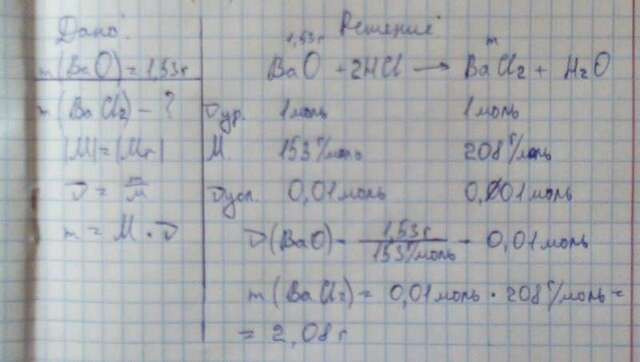 Дано:
m(BaO) = 1,53г
m(BaCl₂) - ?
|M| = |Mr|
ν = m/M
m = M · ν
Решение:
1,53г m
BaO + 2HCl ⟶ BaCl₂ + H₂O
νур. 1 моль 1 моль
M 153 г/моль 208 г/моль
νусл. 0,01 моль 0,01 моль
ν(BaO) = 1,53г / 153 г/моль = 0,01 моль
m(BaCl₂) = 0,01 моль · 208 г/моль =
= 2,08 г